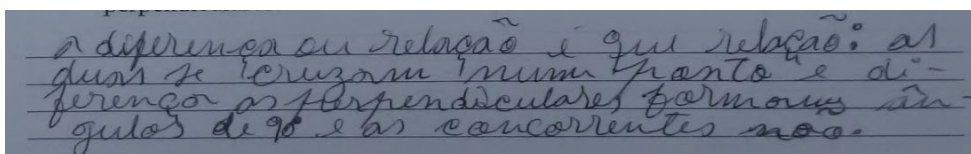 a diferença ou relação é que relação: as
duas se cruzam num ponto e di-
ferença as perpendiculares formam ân-
gulos de 90 e as concorrentes não.